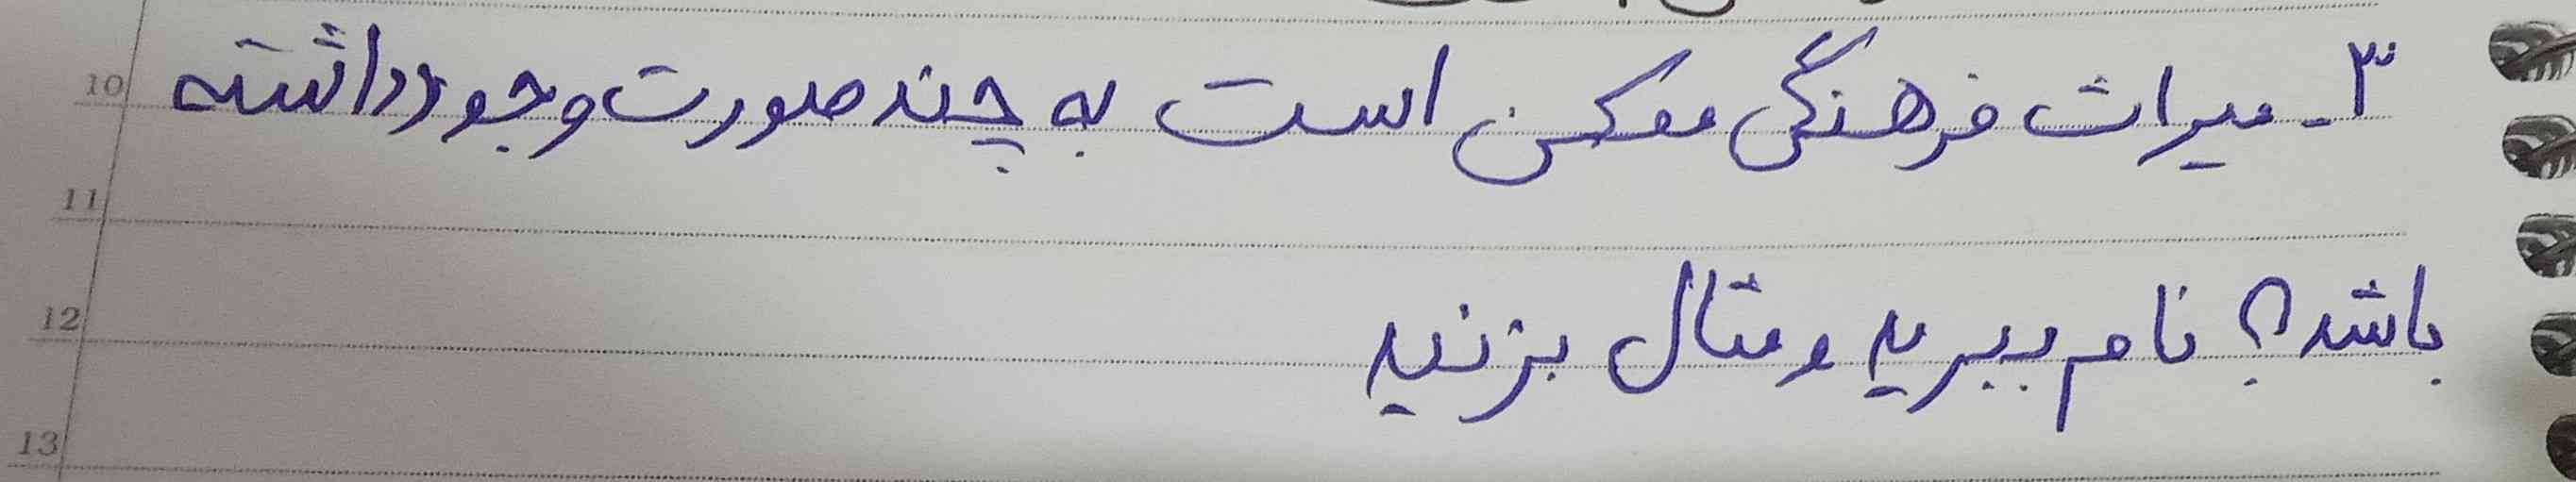 ۳ - میراث فرهنگی ممکن است به چند صورت وجود داشته
باشد؟ نام ببرید و مثال بزنید
10
11
12
13